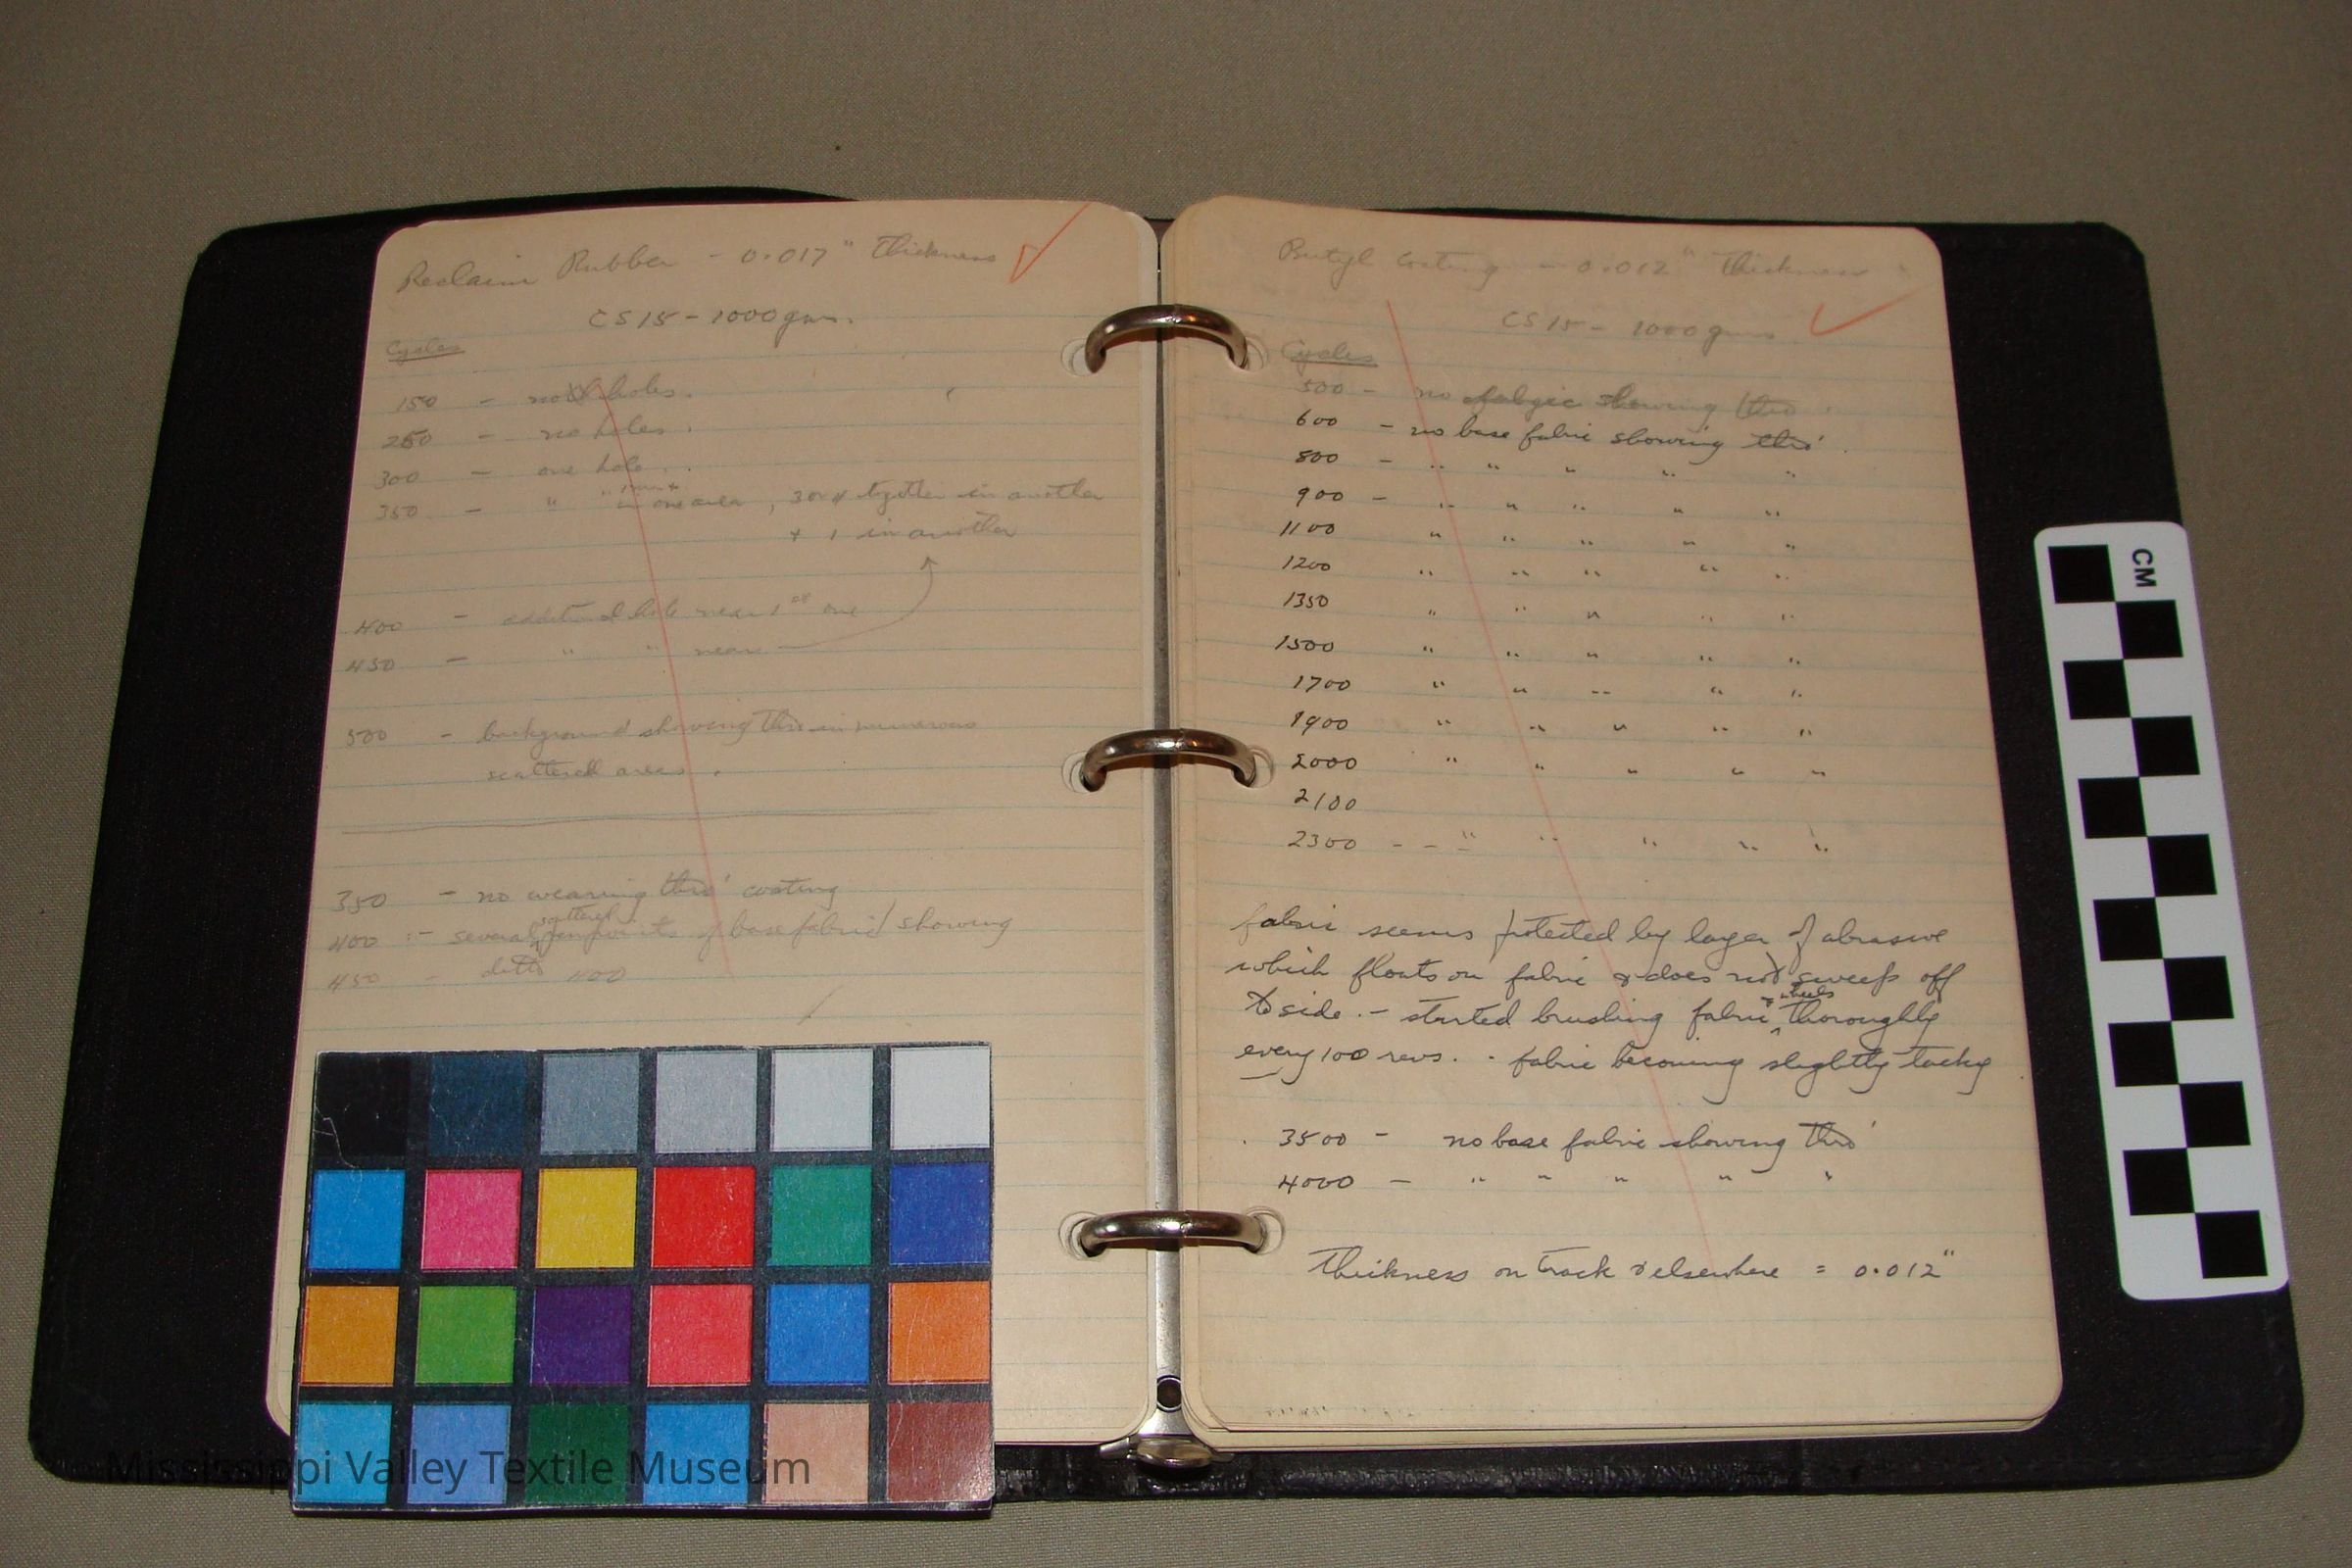 Reclaim Rubber - 0.017" Thickness
CS15 - 1000 gms.
Cycles
150 - no holes.
250 - no holes.
300 - one hole.
350 - " " in one area, 3 or 4 together in another
+ 1 in another
400 - additional hole near 1st one
450 - " " near
500 - background showing thro in numerous
scattered areas.
350 - no wearing thro' coating
400 - several scattered points of base fabric showing
450 - ditto 400
Butyl Coating - 0.012" Thickness
CS15 - 1000 gms
Cycles
500 - no showing thro
600 - no base fabric showing thro'
800 - " " " " "
900 - " " " " "
1100 " " " " "
1200 " " " " "
1350 " " " " "
1500 " " " " "
1700 " " " " "
1900 " " " " "
2000 " " " " "
2100
2300 - - " " " " "
fabric seems protected by layer of abrasive
which floats on fabric & does not sweep off
to side. - started brushing fabric & wheels thoroughly
every 100 revs. - fabric becoming slightly tacky
3500 - no base fabric showing thro'
4000 - " " " " "
Thickness on track & elsewhere = 0.012"
CM
Mississippi Valley Textile Museum